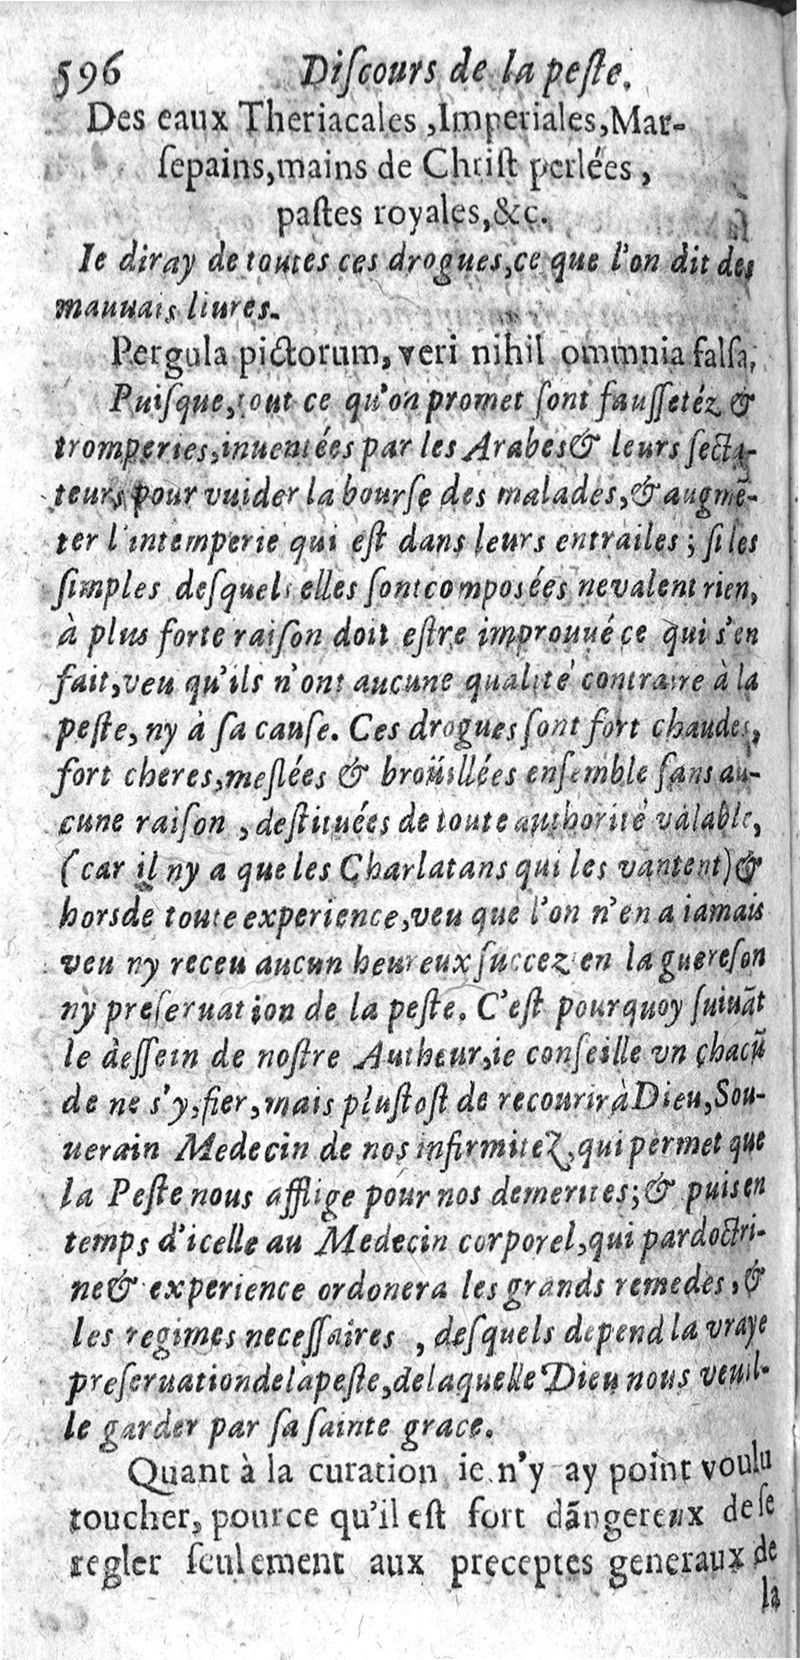 596 Diſcours de la peſte.
Des eaux Theriacales ,Imperiales,Mar-
ſepains,mains de Chriſt perlées ,
paſtes royales,&c.
Ie diray de toutes ces drogues,ce que l'on dit des
mauuais liures.
Pergula pictorum, veri nihil ommnia falſa,
Puiſque,tout ce qu'on promet ſont fauſſetéz &
tromperies,inuentées par les Arabes& leurs ſecta-
teurs pour vuider la bourſe des malades,& augmē-
ter l'intemperie qui eſt dans leurs entrailes ; ſi les
ſimples deſquels elles ſont compoſées ne valent rien,
à plus forte raiſon doit eſtre improuué ce qui s'en
fait,veu qu'ils n'ont aucune qualité contraire à la
peſte, ny à ſa cauſe. Ces drogues ſont fort chaudes,
fort cheres,meſlées & broüillées enſemble ſans au-
cune raiſon , deſtituées de toute authorité valable,
(car il ny a que les Charlatans qui les vantent)&
hors de toute experience,veu que l'on n'en a iamais
veu ny receu aucun heureux ſuccez en la guereſon
ny preſeruation de la peſte. C'eſt pourquoy ſuiuāt
le deſſein de noſtre Autheur,ie conſeille vn chacū
de ne s'y,fier,mais pluſtoſt de recourir à Dieu,Sou-
uerain Medecin de nos infirmitez,qui permet que
la Peſte nous afflige pour nos demerites;& puis en
temps d'icelle au Medecin corporel,qui par doctri-
ne& experience ordonera les grands remedes ,&
les regimes neceſſaires , deſquels depend la vraye
preſeruation de la peſte,de laquelle Dieu nous veuil-
le garder par ſa ſainte grace.
Quant à la curation ie n'y ay point voulu
toucher, pource qu'il eſt fort dāngereux de ſe
regler ſeulement aux preceptes generaux de
la